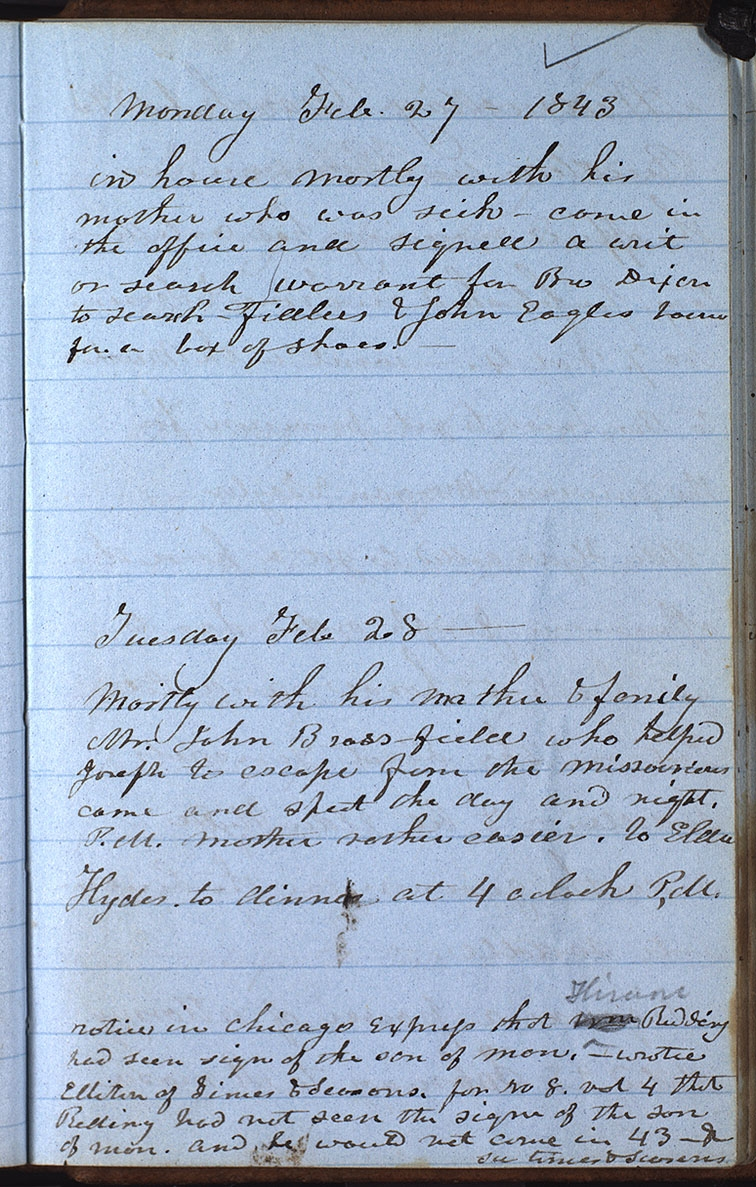 Monday Feb. 27 - 1843
in house mostly with his
mother who was sick - came in
the office and signed a writ
or search warrant for Bro Dixon
to search Fidlers & John Eagles house
for a box of shoes. —
Tuesday Feb 28 —
Mostly with his mother & family
Mr. John Brassfield who helped
Joseph to escape from the missourians
came and spent the day and night.
P.M. mother rather easier. to Elder
Hydes. to dinner at 4 oclock P,M.
Hiram
notice in Chicago Express that Wm Redding
had seen sign of the son of man, — wrote
Editor of Times & Seasons. for no 8. vol 4 that
Redding had not seen the sign of the son
of man. and he would not come in 43 — &
see times & seasons